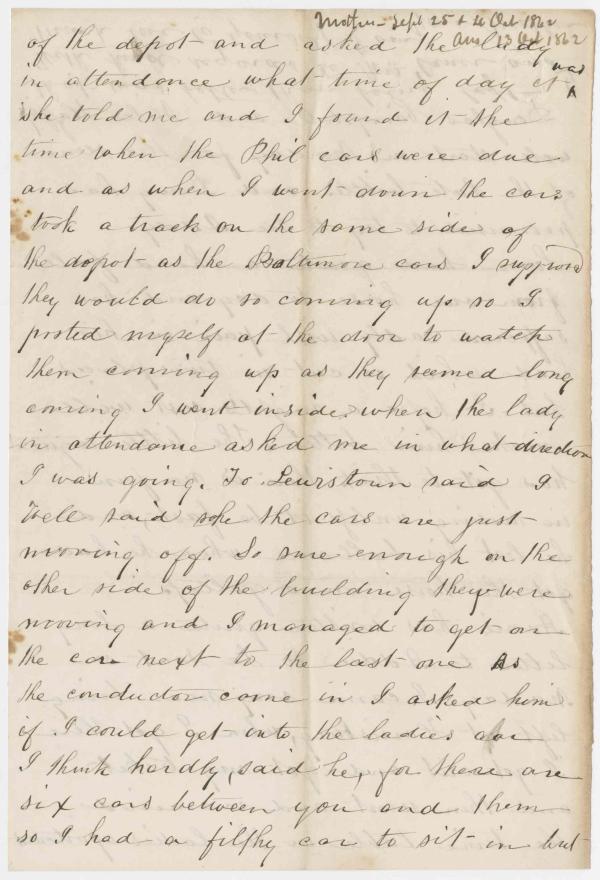 Mother - Sept 25 & 4 Oct 1862
Ans 13 Oct 1862
of the depot and asked the lady
in attendance what time of day it was
she told me and I found it the
time when the Phil cars were due
and as when I went down the cars
took a track on the same side of
the depot as the Baltimore cars I supposed
they would do so coming up so I
posted myself at the door to watch
them coming up as they seemed long
coming I went inside, when the lady
in attendance asked me in what direction
I was going. To Lewistown said I
Well said she the cars are just
moving off. So sure enough on the
other side of the building they were
moving and I managed to get on
the car next to the last one As
the conductor came in I asked him
if I could get into the ladies car
I think hardly, said he, for there are
six cars between you and them
so I had a filthy car to sit in but